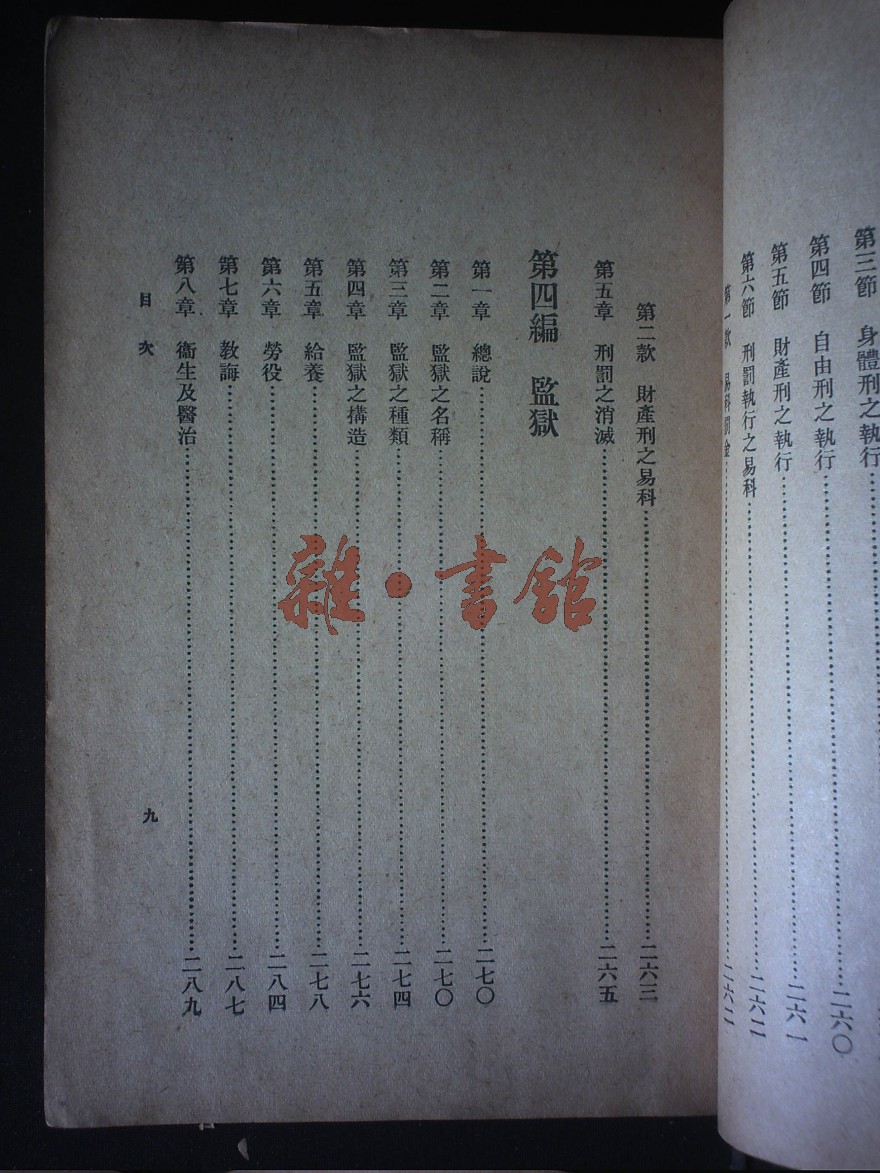 第三節　身體刑之執行
第四節　自由刑之執行……二六〇
第五節　財產刑之執行……二六一
第六節　刑罰執行之易科……二六二
第一款　易科罰金……二六二
第二款　財產刑之易科……二六三
第五章　刑罰之消滅……二六五
第四編　監獄
第一章　總說……二七〇
第二章　監獄之名稱……二七〇
第三章　監獄之種類……二七四
第四章　監獄之構造……二七六
第五章　給養……二七八
第六章　勞役……二八四
第七章　教誨……二八七
第八章　衞生及醫治……二八九
目次
九
雜·書館